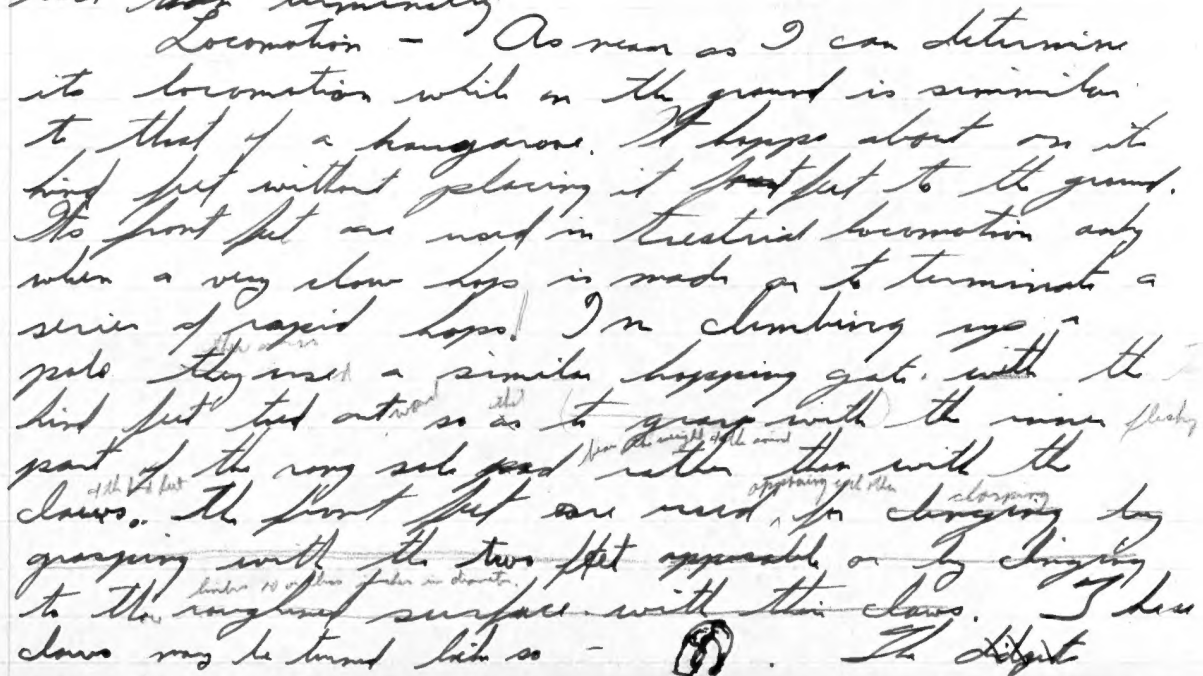 Locomotion - As near as I can determine
its locomotion while on the ground is simmilar
to that of a kangaroo. It hopps about on its
hind feet without placing it front feet to the ground.
Its front feet are used in trestrial locomotion only
when a very slow hop is made or to terminate a
series of rapid hops. In climbing up a
pole they used a similar hopping gate. with the
hind feet toed outward so as that (to grasp with) the inner fleshy
bear the weight of the animal
part of the sole pad rather than with the
of the hind feet opposing each other clasping
claws. The front feet are used, for clinging by
grasping with the two feet opposable or by clinging
limbs or in diameter.
to the roughened surface with their claws. These
claws may be turned like so - . The